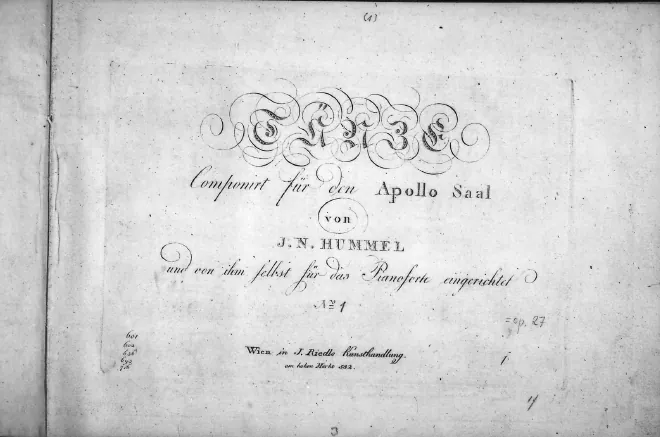 (1)
TÄNZE
Componirt für den Apollo Saal
von
J. N. HUMMEL
und von ihm selbst für das Pianoforte eingerichtet
No. 1
=op. 27
601
Wien in J. Riedls Kunsthandlung.
am hohen Markt 582.
1.